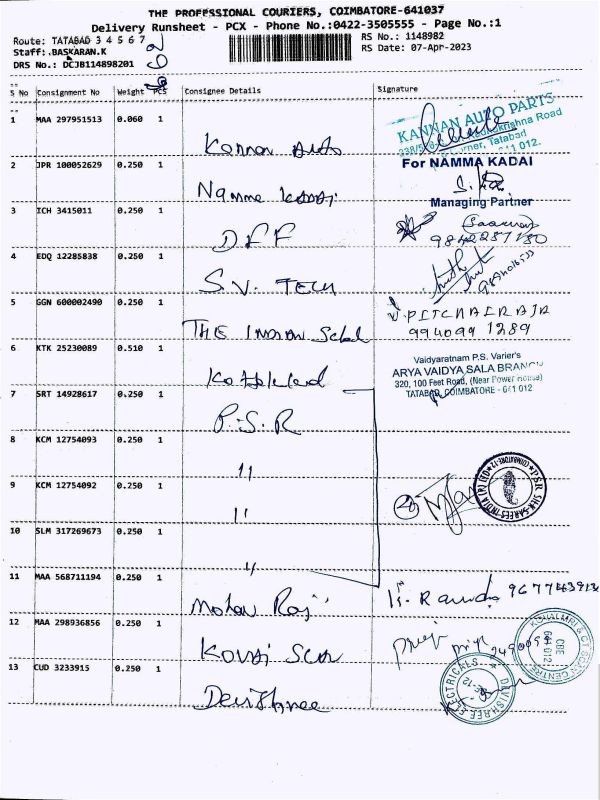 THE PROFESSIONAL COURIERS, COIMBATORE-641037
Delivery Runsheet - PCX - Phone No.:0422-3505555 - Page No.:1
Route: TATABAD 3 4 5 6 7
RS No.: 1148982
Staff:.BASKARAN.K
RS Date: 07-Apr-2023
DRS No.: DCJB114898201
S No Consignment No Weight PCS Consignee Details Signature
1 MAA 297951513 0.060 1 Kannan Auto
KANNAN AUTO PARTS
Tatabad
2 JPR 100052629 0.250 1 Namma Kadai
For NAMMA KADAI
Managing Partner
3 ICH 3415011 0.250 1 DFF
9842287180
4 EDQ 12285838 0.250 1 S.V. TECH
5 GGN 600002490 0.250 1 THE INDIAN School
PITCHAIRAJA
9940991289
6 KTK 25230089 0.510 1 Kottakkal
Vaidyaratnam P.S. Varier's
ARYA VAIDYA SALA BRANCH
320, 100 Feet Road, (Near Power House)
TATABAD, COIMBATORE - 641 012
7 SRT 14928617 0.250 1 P.S.R
8 KCM 12754093 0.250 1 "
9 KCM 12754092 0.250 1 "
PSR SILK SAREES INDIA (P) LTD COIMBATORE-12
10 SLM 317269673 0.250 1 "
11 MAA 568711194 0.250 1 Mohan Raj
12 MAA 298936856 0.250 1 Kovai Scan
KOVAI MRI & CT SCAN CENTRE
CBE
641 012
13 CUD 3233915 0.250 1 Devishree
DEVISHREE ELECTRICALS